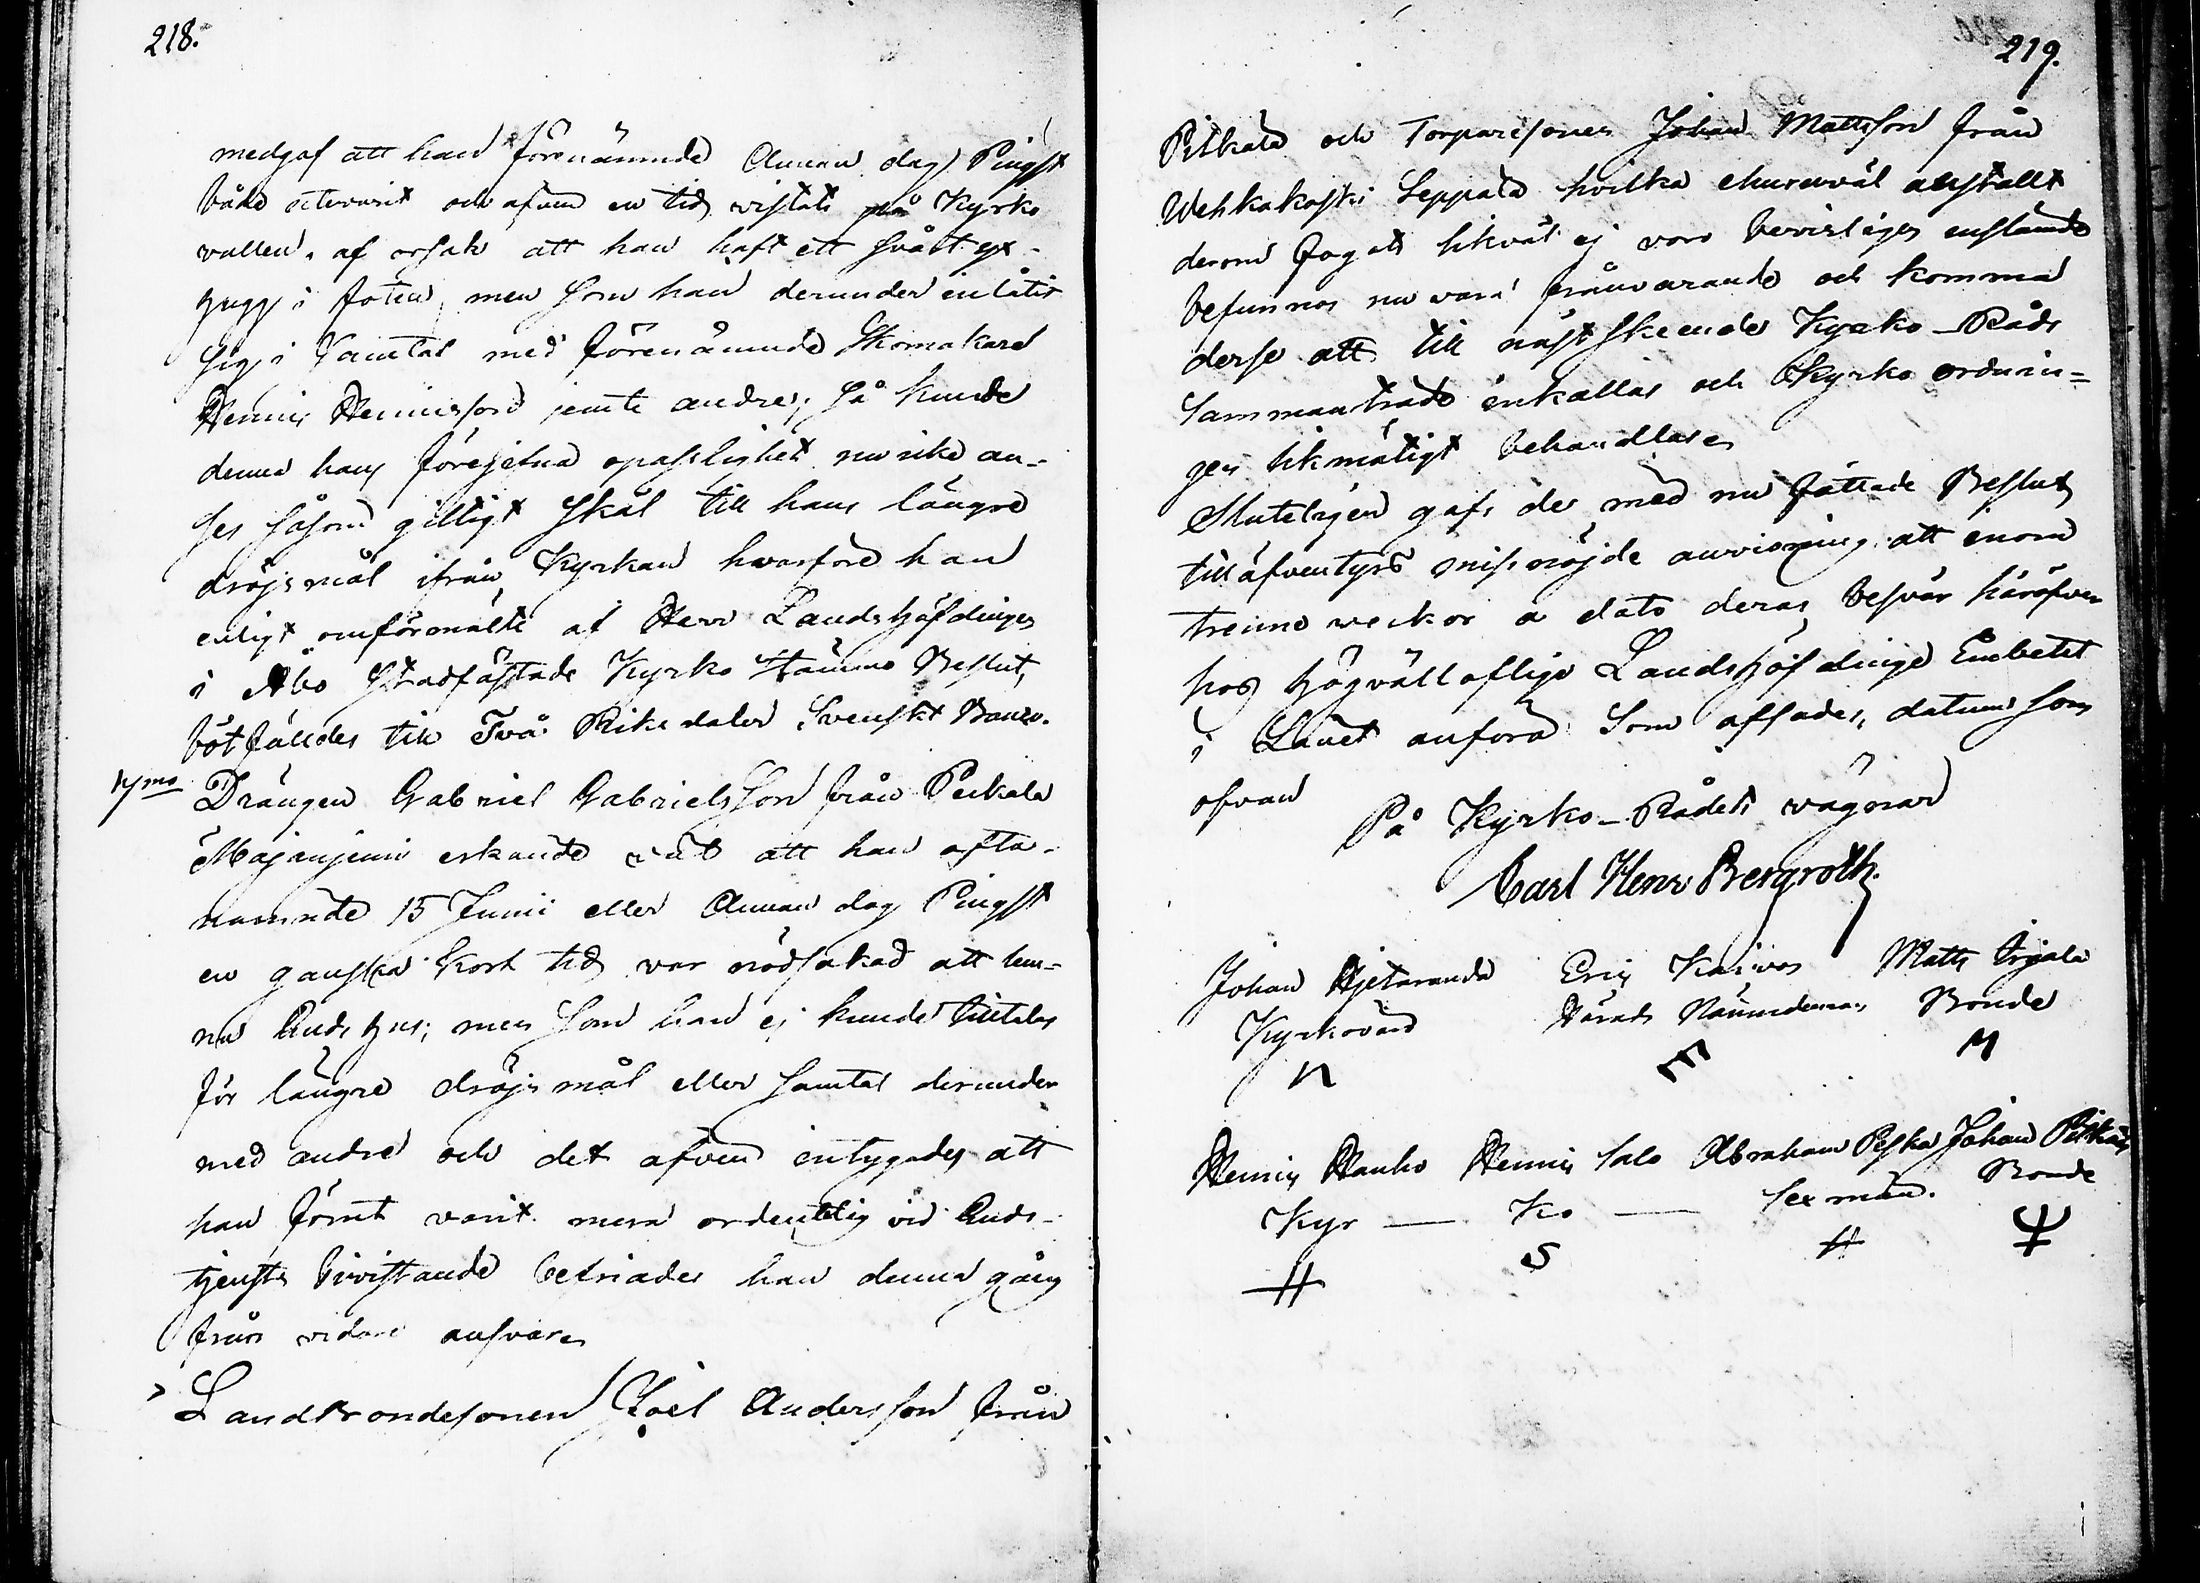 218.
medgaf att han förenämnde Annan dag Pingst
både utevarit och äfven en tid vistats på Kyrko
vallen, af orsak att han haft ett svårt yx-
hugg i foten, men som han derunder inlåtit
sig i samtal med förenämnde Skomakare
Hennis Hennisson jemte andre; så kunde
denna hans föregifna opasslighet nu icke an-
ses såsom gilltigt skäl till hans längre
dröjsmål ifrån Kyrkan hvarföre han
enligt omförmälte af Herr Landshöfdingen
i Åbo stadfästade Kyrko Stämmo Beslut,
bötfälldes till Två Riksdaler Svenskt Banco.
Drängen Gabriel Gabrielsson från Peikala
Majanjemi erkände väl att han ofta-
nämnde 15 Junii eller Annan dag Pingst
en ganska kort tid var nödsakad att lem-
na Gudshus; men som han ej kunde tilltalas
för längre dröjsmål eller samtal derunder
med andre och det äfven intygades att
han förut varit mera ordentlig vid Guds-
tjensts bivistande befriades han denna gång
från vidare ansvar.
Landbondesonen Joel Andersson från
219.
Pitkälä och Torparesonen Johan Mattsson från
Wehkakoski Seppälä hvilka ehuruväl anstallt
derom fogats likväl ej voro bevisligen instämde
befunnos nu vara frånvarande och komma
derföre att till nästskeende Kyrko-Råds
Sammanträde inkallas och Kyrko ordnin=
gen likmätigt behandlas.
Slutligen gafs de med nu fattade Beslut
till äfventyrs missnöjde anvisning att inom
trenne veckor a dato deras besvär häröfver
hos högvällofliga Landshöfdinge Embetet
i Länet anföra Som afsades, datum som
ofvan
På Kyrko-Rådets vägnar
Carl Henr Bergroth.
Johan Hjetaranda Eric Kaivos Matts Irjala
Kyrkovärd Härads Nämndeman Bonde
N E M
Hennis Hanho Hennis Salo Abraham Peska Johan Pitkälä
Kyr — Ko — Sexmän. Bonde
H S H